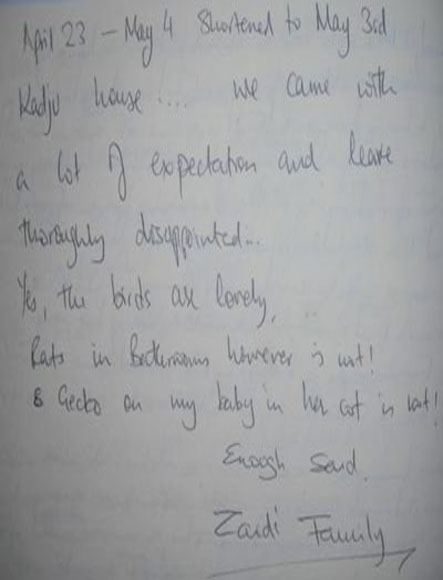 April 23 - May 4 Shortened to May 3rd
Kadju house .... We came with
a lot of expectation and leave
thoroughly disappointed...
Yes, the birds are lovely,
Rats in Bedrooms however is not!
& Gecko on my baby in her cot is not!
Enough Said.
Zaidi Family